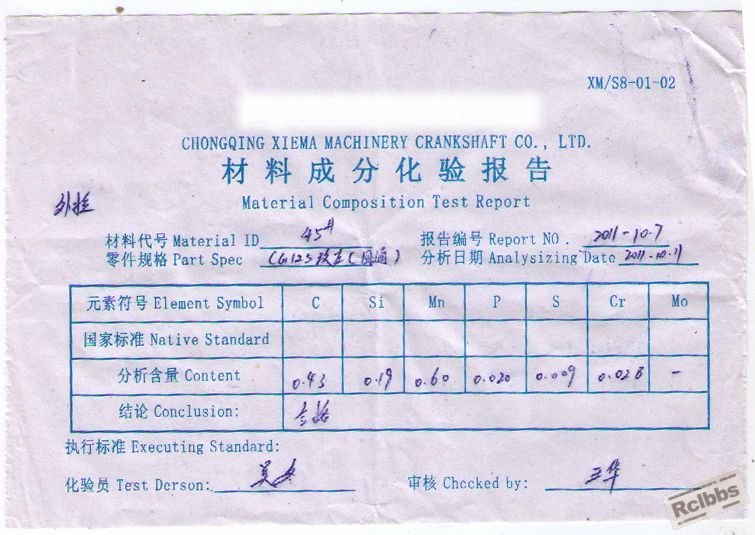 XM/S8-01-02
CHONGQING XIEMA MACHINERY CRANKSHAFT CO., LTD.
材料成分化验报告
Material Composition Test Report
外检
材料代号 Material ID 45# 报告编号 Report NO. 2011-10.7
零件规格 Part Spec CG125 分析日期 Analysizing Date 2011.10.11
元素符号 Element Symbol C Si Mn P S Cr Mo
国家标准 Native Standard
分析含量 Content 0.43 0.19 0.60 0.020 0.009 0.028 -
结论 Conclusion: 合格
执行标准 Executing Standard:
化验员 Test Derson: 审核 Checked by: 王华
Rclbbs